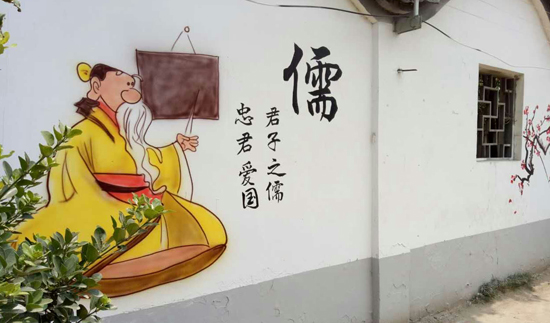 儒
君子之儒
忠君爱国